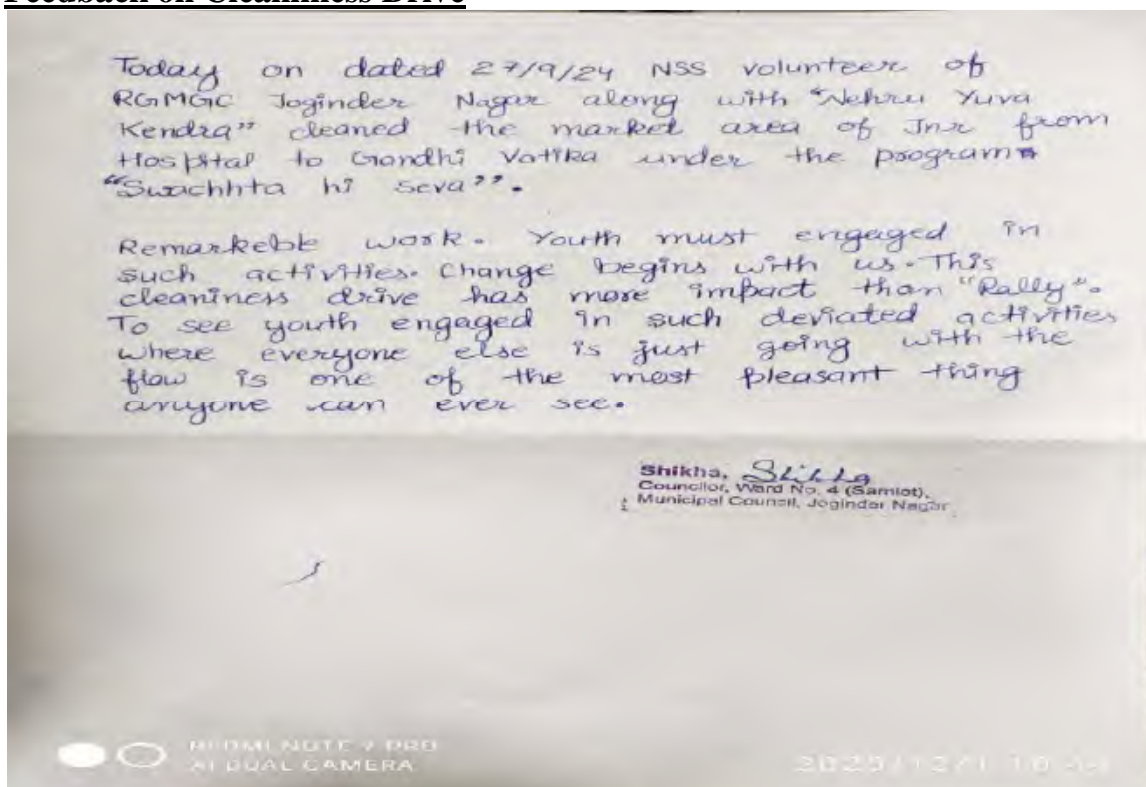 Feedback on Cleanliness Drive
Today on dated 27/9/24 NSS volunteer of
RGMGC Joginder Nagar along with "Nehru Yuva
Kendra" cleaned the market area of Jnr from
Hospital to Gandhi Vatika under the program
"Swachhta hi Seva".
Remarkeble work. Youth must engaged in
such activities. Change begins with us. This
cleaniness drive has more impact than "Rally".
To see youth engaged in such deviated activities
where everyone else is just going with the
flow is one of the most pleasant thing
anyone can ever see.
Shikha, Shikha
Councilor, Ward No. 4 (Samlot),
Municipal Council, Joginder Nagar
REDMI NOTE 7 PRO
AI DUAL CAMERA